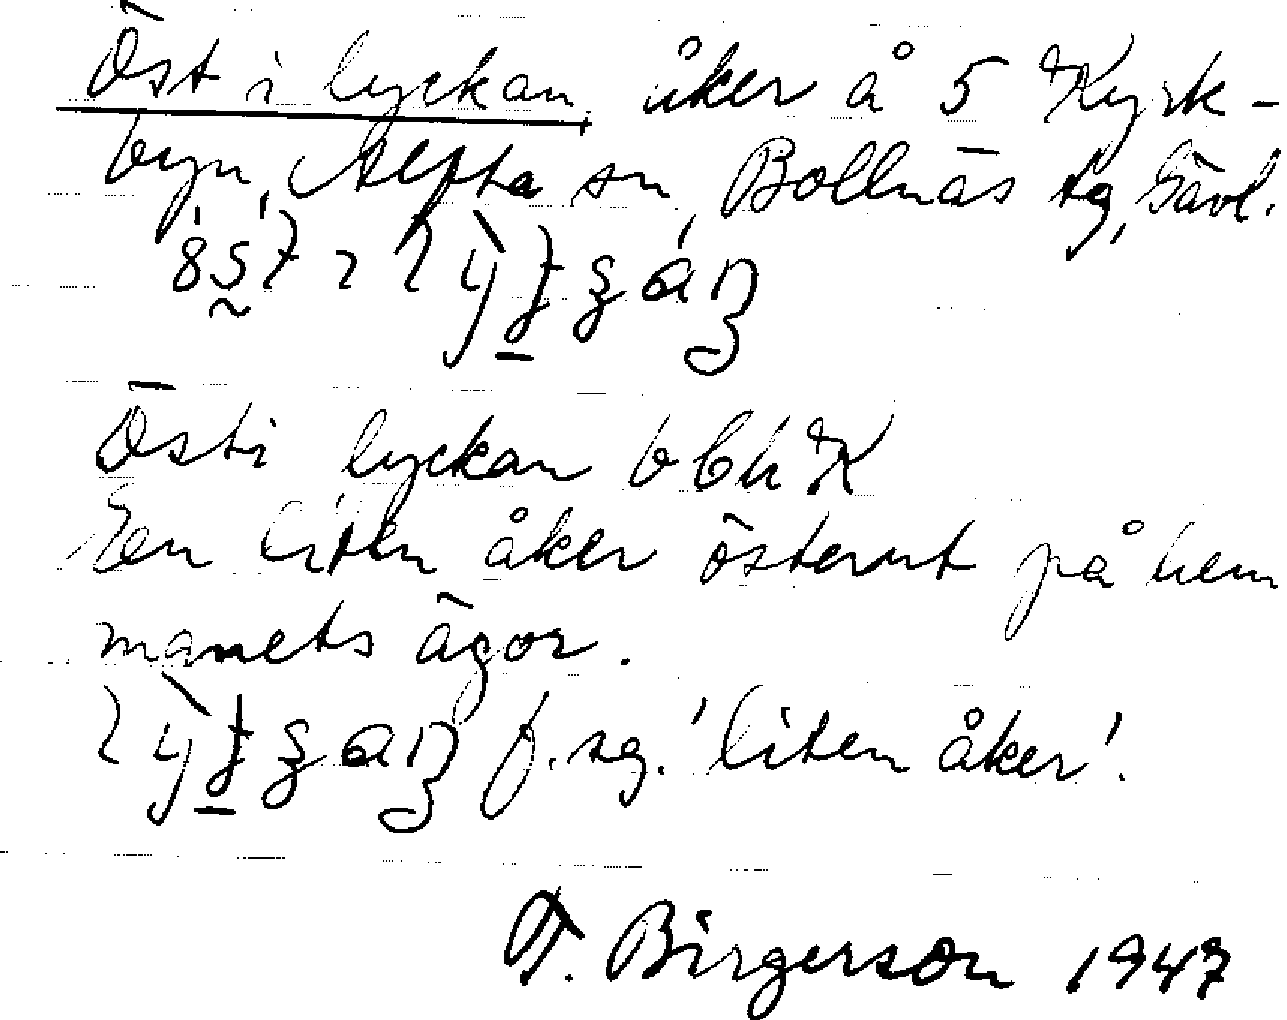 Öst i lyckan, åker å 5 Kyrk-
byn, Alfta sn, Bollnäs tg, Gävl.
Öst i lyckan bbh K
En liten åker österut på hem
manets ägor.
f. sg. 'liten åker'.
T. Birgerson 1947